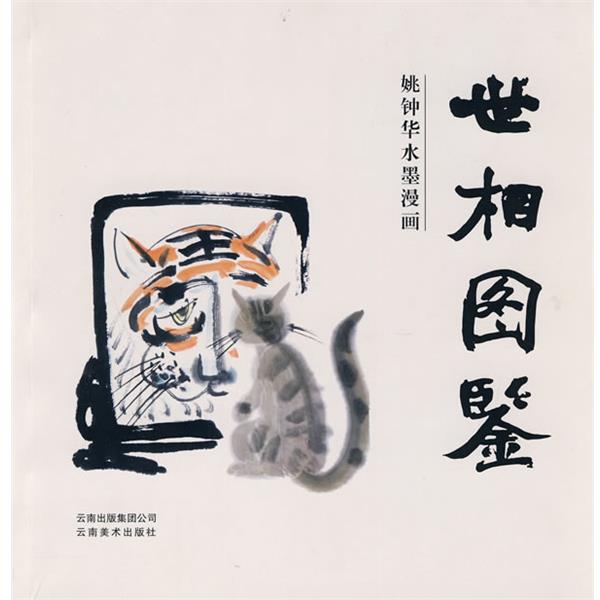 世相图鉴
姚钟华水墨漫画
云南出版集团公司
云南美术出版社